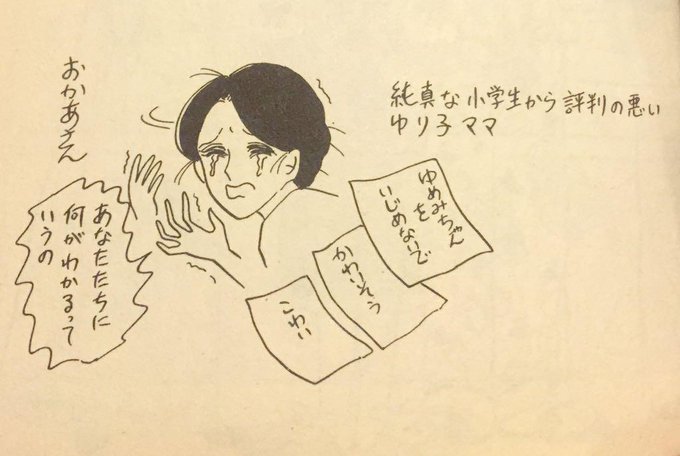 純真な小学生から評判の悪い
ゆり子ママ
ゆめみちゃん
を
いじめないで
かわいそう
こわい
おかあさん
あなたたちに
何がわかるって
いうの